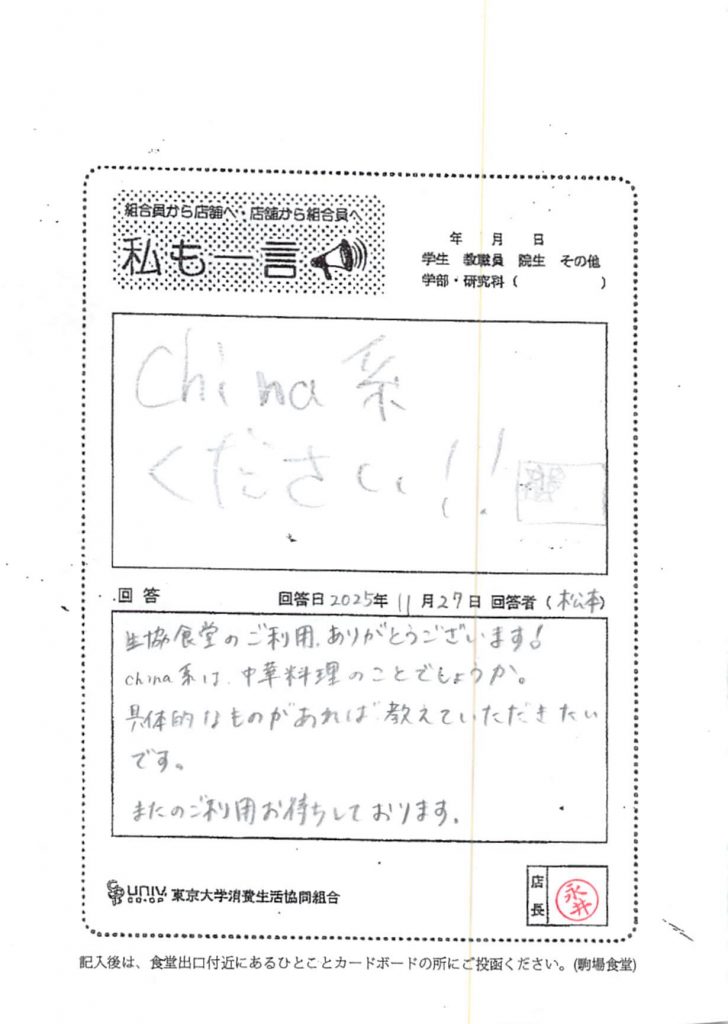 組合員から店舗へ・店舗から組合員へ
私も一言
年 月 日
学生 教職員 院生 その他
学部・研究科 ( )
China系
ください!!
回答 回答日 2025年 11月27日 回答者 (松本)
生協食堂のご利用、ありがとうございます!
china系は、中華料理のことでしょうか。
具体的なものがあれば教えていただきたい
です。
またのご利用お待ちしております。
UNIV. CO-OP 東京大学消費生活協同組合
店長 永井
記入後は、食堂出口付近にあるひとことカードボードの所にご投函ください。(駒場食堂)